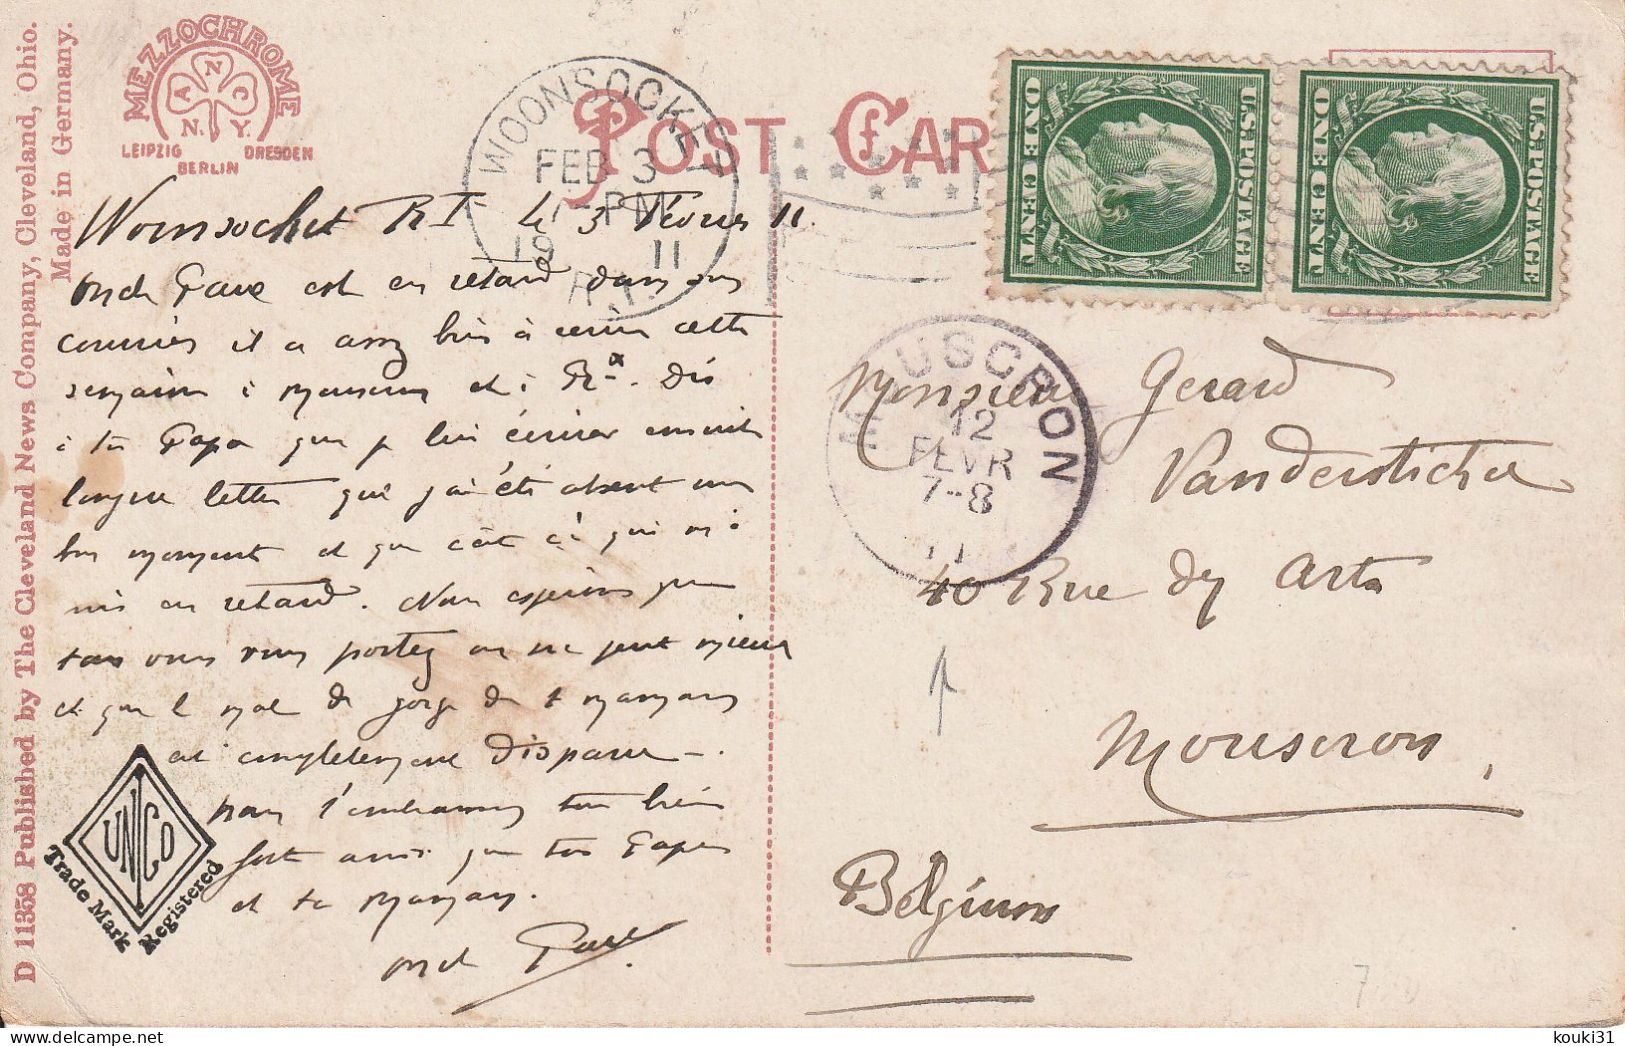 D 11358 Published by The Cleveland News Company, Cleveland, Ohio.
Made in Germany.
MEZZOCHROME
A N C
N. Y.
LEIPZIG DRESDEN
BERLIN
POST CAR
WOONSOCKET
FEB 3
PM
19 11
R.I.
U.S. POSTAGE
ONE CENT
U.S. POSTAGE
ONE CENT
MOUSCRON
12
FEVR
7-8
11
Woonsocket RI le 3 Février 11.
oncle est en retard dans son
courrier il a assez bien à écrire cette
semaine à Mouscron et à Rx. Dis
à ton Papa que je lui écrirai ensuite
longue lettre que j'ai été absent un
bon moment et que c'est ce qui m'a
mis en retard. Nous espérons que
tous vous vous portez on ne peut mieux
et que le mal de gorge de ta maman
est complètement disparu.
Nous t'embrassons tous bien
fort ainsi que ton Papa
et ta Maman.
oncle
UNICO
Trade Mark Registered
Monsieur Gerard
40 Rue des Arts
Mouscron,
Belgium
7
kouki31